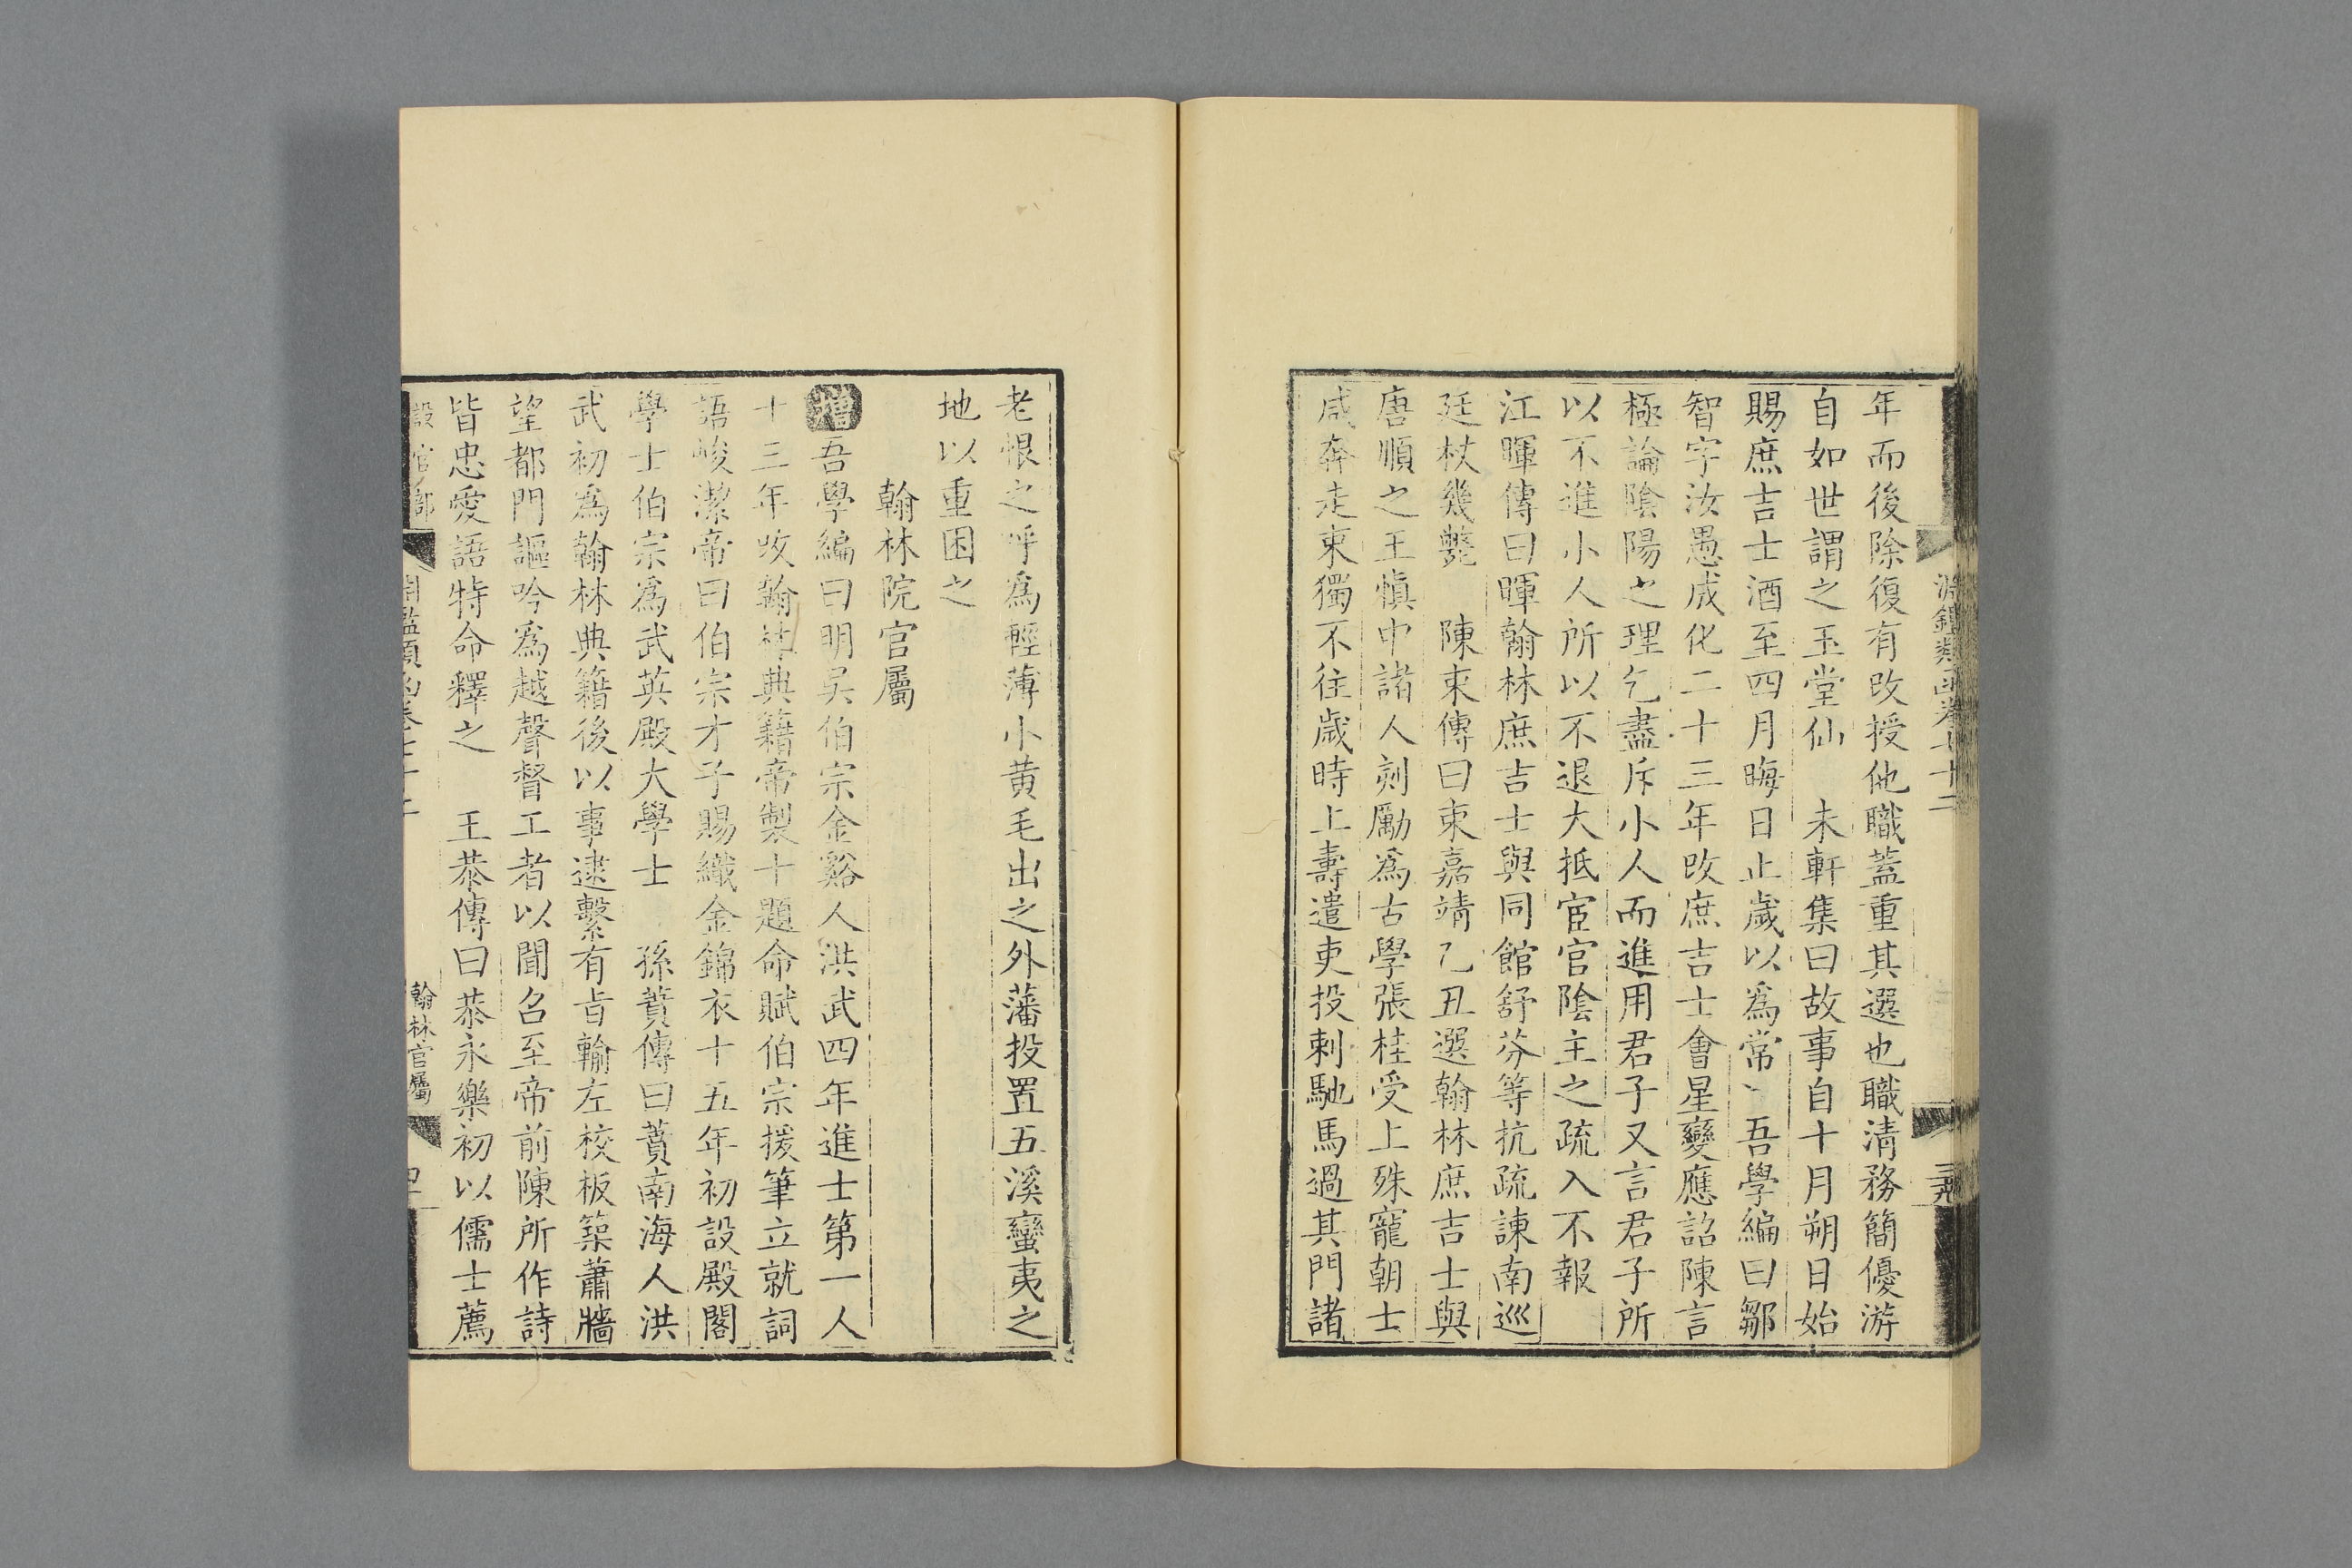 淵鑑類函卷七十二
三九
年而後除復有改授他職蓋重其選也職清務簡優游
自如世謂之玉堂仙　未軒集曰故事自十月朔日始
賜庶吉士酒至四月晦日止歲以爲常　吾學編曰鄒
智字汝愚成化二十三年改庶吉士會星變應詔陳言
極論陰陽之理乞盡斥小人而進用君子又言君子所
以不進小人所以不退大抵宦官陰主之疏入不報
江暉傳曰暉翰林庶吉士與同館舒芬等抗疏諫南巡
廷杖幾斃　陳束傳曰束嘉靖乙丑選翰林庶吉士與
唐順之王愼中諸人刻勵爲古學張桂受上殊寵朝士
咸奔走束獨不往歲時上壽遣吏投剌馳馬過其門諸
老恨之呼爲輕薄小黄毛出之外藩投置五溪蠻夷之
地以重困之
翰林院官屬
增吾學編曰明吳伯宗金谿人洪武四年進士第一人
十三年改翰林典籍帝製十題命賦伯宗援筆立就詞
語峻潔帝曰伯宗才子賜織金錦衣十五年初設殿閣
學士伯宗爲武英殿大學士　孫蕡傳曰蕡南海人洪
武初爲翰林典籍後以事逮繫有旨輸左校板築蕭牆
望都門謳吟爲越聲督工者以聞召至帝前陳所作詩
皆忠愛語特命釋之　王恭傳曰恭永樂初以儒士薦
設官部
淵鑑類函卷七十二
翰林官屬